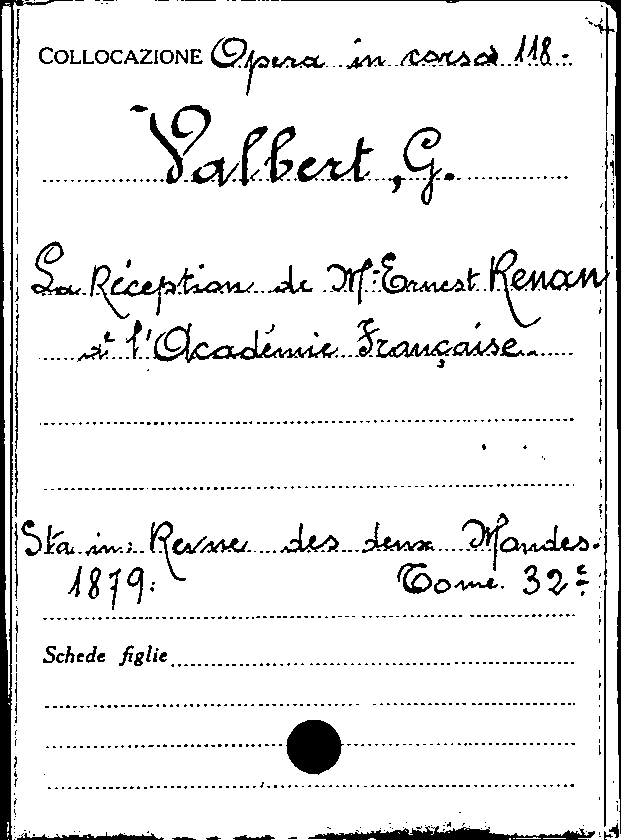 COLLOCAZIONE Opera in corso 118.
Valbert, G.
La Réception de Mr Ernest Renan
à l'Académie Française.
Sta in: Revue des deux Mondes.
1879. Tome 32e
Schede figlie